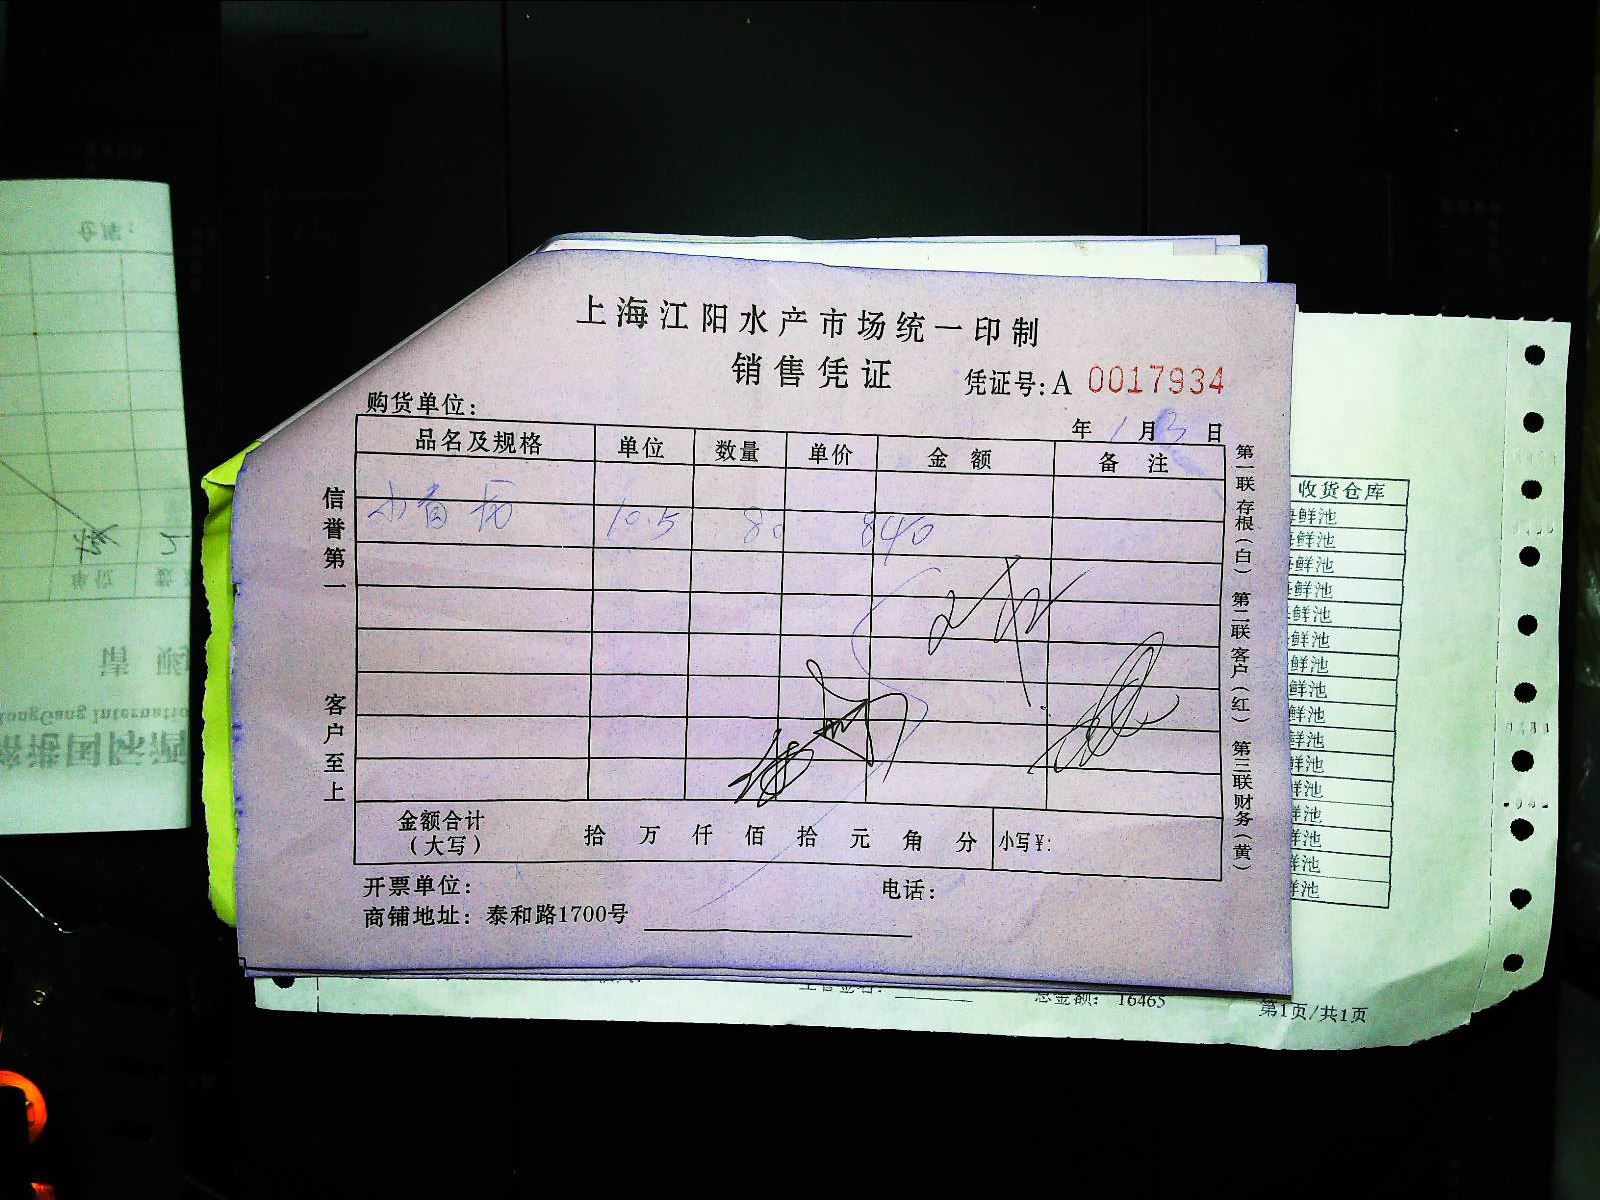 上海江阳水产市场统一印制
销售凭证
凭证号:A 0017934
购货单位:
年 1 月 3 日
品名及规格 单位 数量 单价 金额 备注
10.5 80 840
信誉第一
客户至上
第一联存根(白) 第二联客户(红) 第三联财务(黄)
金额合计(大写) 拾 万 仟 佰 拾 元 角 分 小写¥:
开票单位: 电话:
商铺地址: 泰和路1700号
收货仓库
鲜池
鲜池
鲜池
鲜池
鲜池
鲜池
鲜池
鲜池
鲜池
鲜池
鲜池
鲜池
鲜池
鲜池
鲜池
鲜池
总金额: 16465
第1页/共1页
仓库:
单位
请购